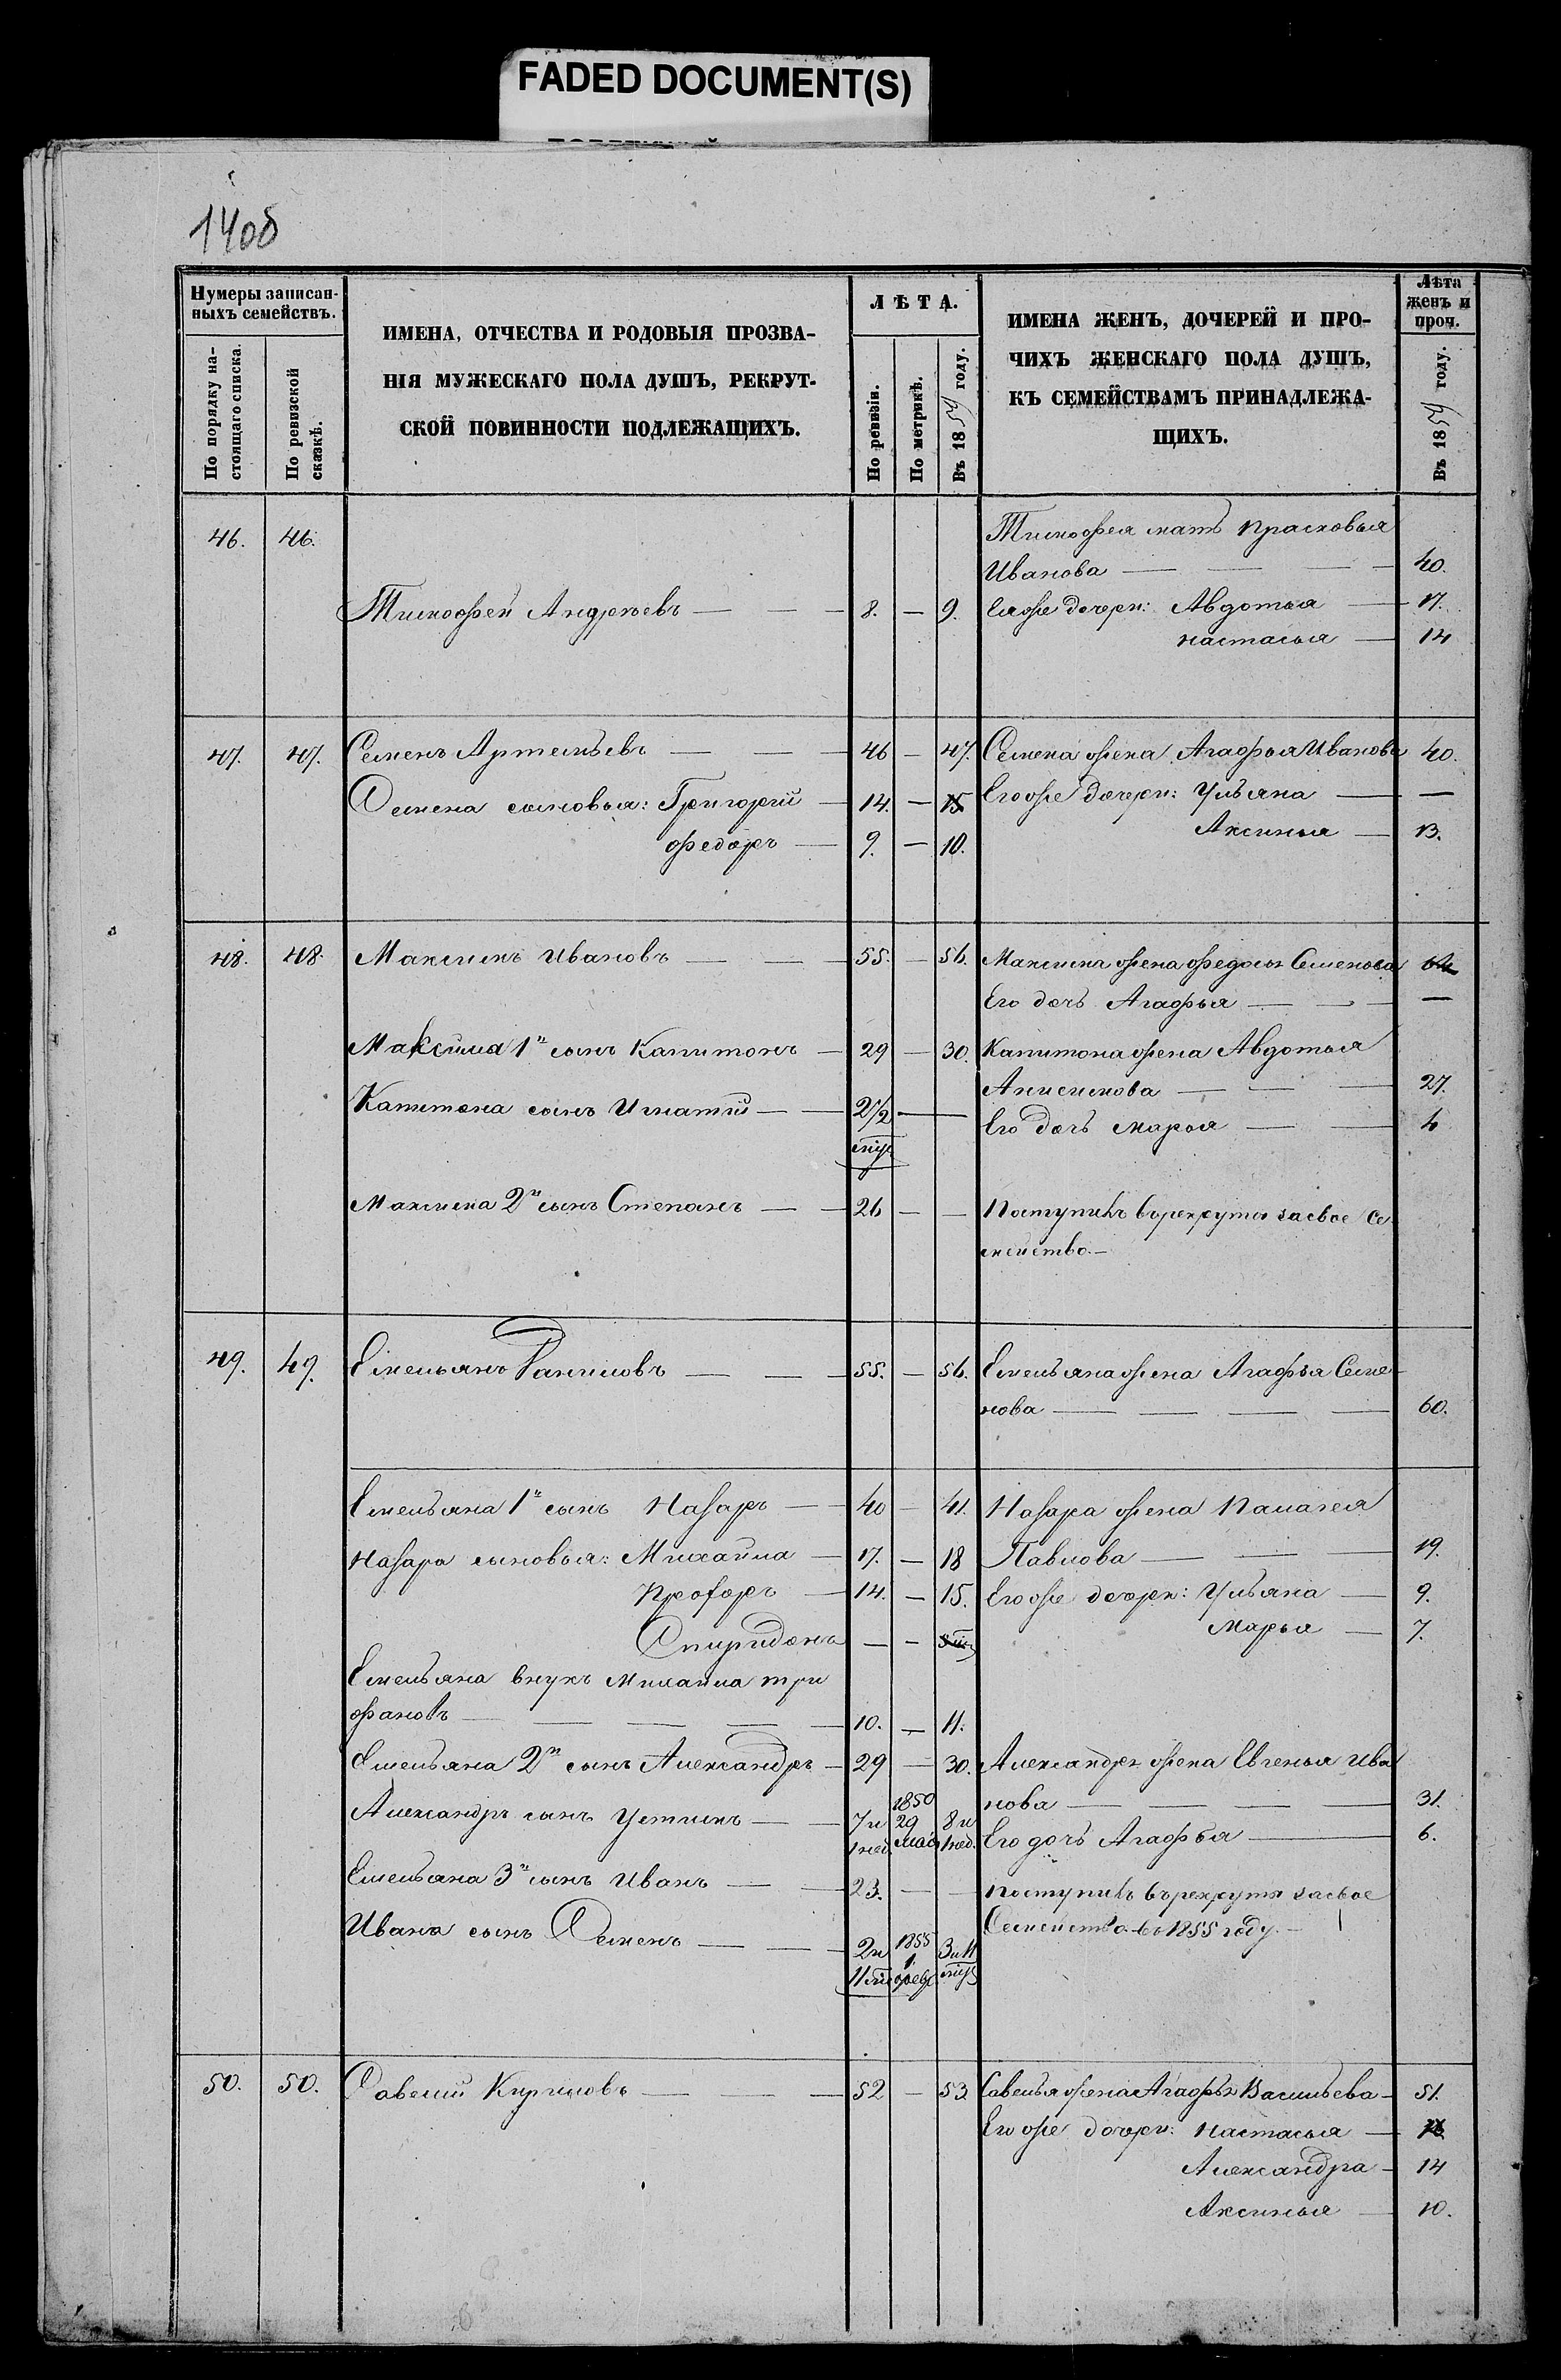 FADED DOCUMENT(S)
1408
Нумеры записан-
ныхъ семействъ.
По порядку на-
стоящаго списка.
По ревизской
сказкѣ.
ИМЕНА, ОТЧЕСТВА И РОДОВЫЯ ПРОЗВА-
НІЯ МУЖЕСКАГО ПОЛА ДУШЪ, РЕКРУТ-
СКОЙ ПОВИННОСТИ ПОДЛЕЖАЩИХЪ.
ЛѢТА.
По ревизіи.
По метрикѣ.
Въ 18 году.
ИМЕНА ЖЕНЪ, ДОЧЕРЕЙ И ПРО-
ЧИХЪ ЖЕНСКАГО ПОЛА ДУШЪ,
КЪ СЕМЕЙСТВАМЪ ПРИНАДЛЕЖА-
ЩИХЪ.
Лѣта
женъ и
проч.
Въ 18 году.
46. 46. Тимофея мать Прасковья
Иванова — — — 40.
Тимофей Андреевъ — — — 8. — 9. Еяже дочери: Авдотья — 17.
Настасья — 14
47. 47. Семенъ Артемьевъ — — — 46 — 47. Семена жена Агафья Иванова 40.
Семена сыновья: Григорий — 14. — 15 Егоже дочери: Ульяна — —
Федоръ — 9. — 10. Аксинья — 13.
48. 48. Максимъ Ивановъ — — — 55. — 56. Максима жена Федосья Семенова
Его дочь Агафья — — — —
Максима 1й сынъ Капитонъ — 29 — 30. Капитона жена Авдотья
Анисимова — — — 27.
Капитона сынъ Игнатий — — 2/2 — Его дочь Марья — — 4
мѣс
Максима 2й сынъ Степанъ — — 26 — — Поступилъ въ рекруты за свое се
мейство. —
49. 49. Емельянъ Даниловъ — — — 55. — 56. Емельяна жена Агафья Семе-
нова — — — — 60.
Емельяна 1й сынъ Назаръ — — 40 — 41. Назара жена Палагея
Назара сыновья: Михайла — 17. — 18 Павлова — — — 19.
Профоръ — 14. — 15. Егоже дочери: Ульяна — 9.
Спиридонъ — — Марья — 7.
Емельяна внукъ Михайла Три
фановъ — — — — — 10. — 11.
Емельяна 2й сынъ Александръ — 29 — 30. Александра жена Евгенья Ива
нова — — — — 31.
Александра сынъ Устинъ — — 7 и 1850 29 8 и
1 нед. мая 1 нед. Его дочь Агафья — 6.
Емельяна 3й сынъ Иванъ — — 23. — — Поступилъ въ рекруты за свое
Семейство въ 1855 году. —
Ивана сынъ Семенъ — — — 2 и 1855 3 и 11
11 мѣс 1 февр мѣс
50. 50. Савелий Кириловъ — — — 52 — 53 Савелья жена Агафья Васильева — 51.
Егоже дочери: Настасья —
Александра — 14
Аксинья — 10.